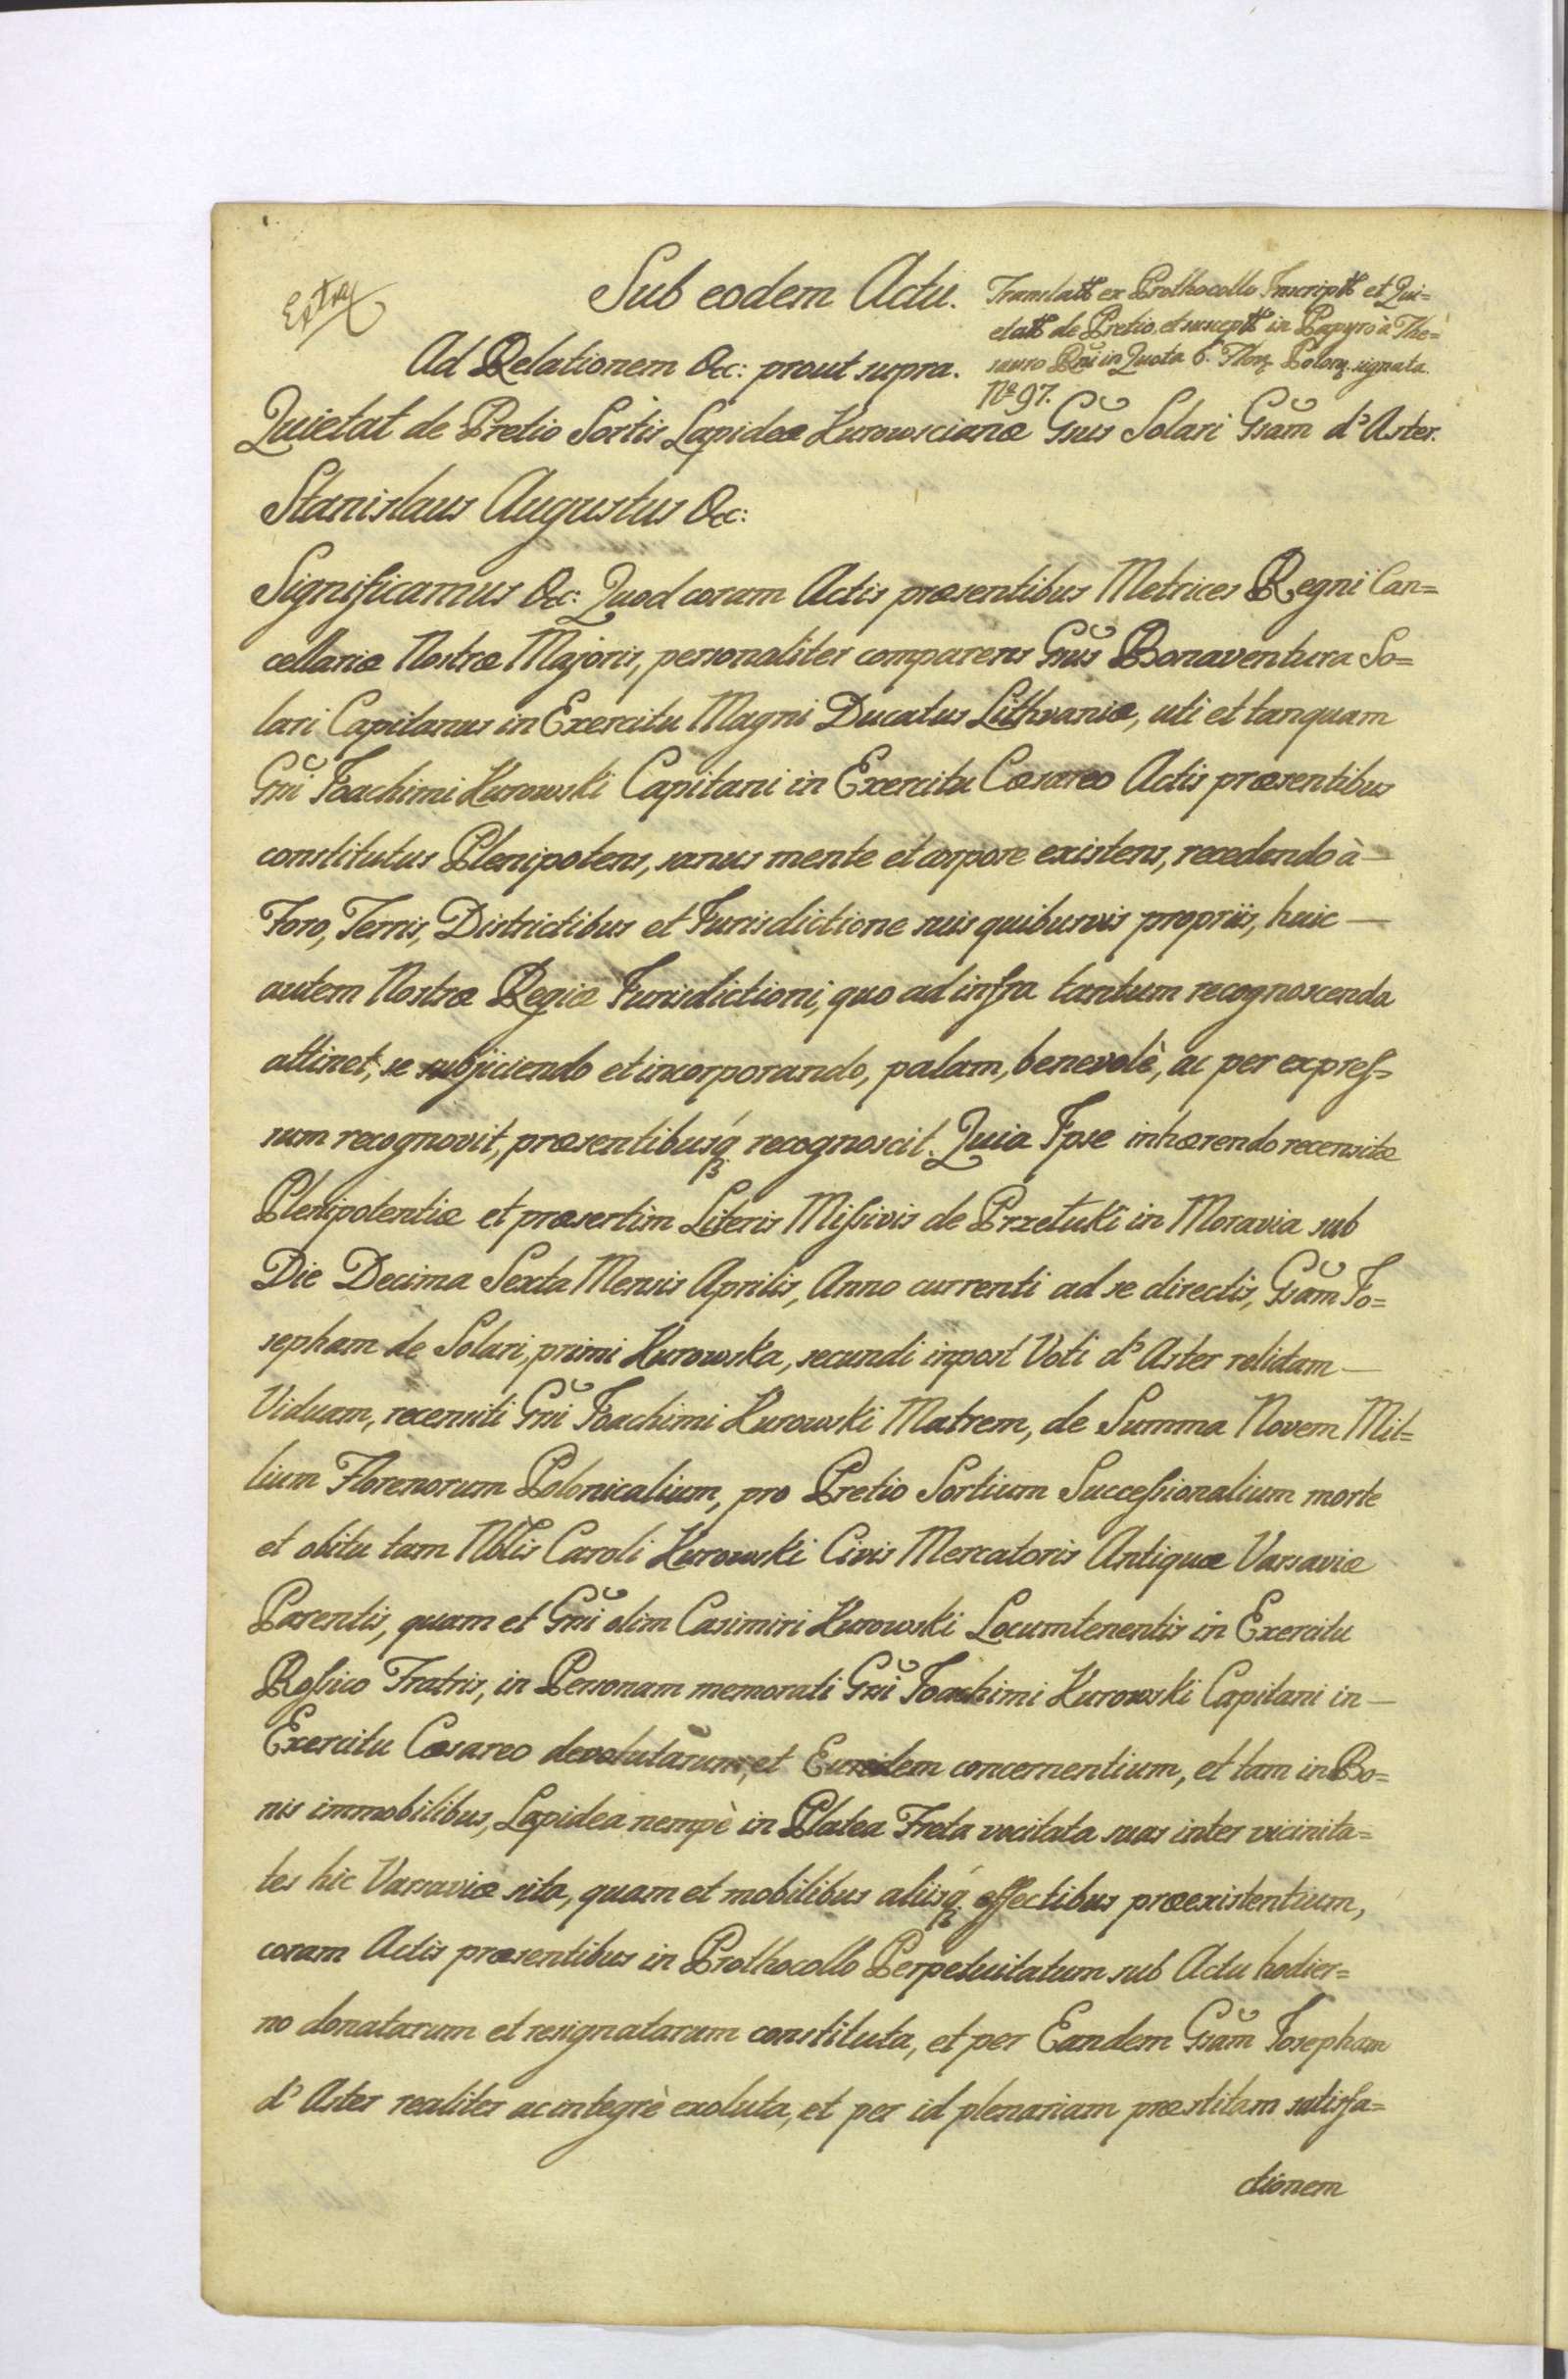 Extra
Sub eodem Actu.
Translatt ex Prothocollo Inscriptt et Qui=
etatt de Pretio et susceptt in Papyro à The=
sauro Rni in Quota 6. Flor. Polon. signata.
No 97.
Ad Relationem &c: prout supra.
Quietat de Pretio Sortis Lapideæ Kurowscianæ Gsus Solari Gsam d'Aster.
Stanislaus Augustus &c:
Significamus &c: Quod coram Actis præsentibus Metrices Regni Can=
cellariæ Nostræ Majoris, personaliter comparens Gsus Bonaventura So=
lari Capitanus in Exercitu Magni Ducatus Lithvaniæ, uti et tanquam
Gsi Joachimi Kurowski Capitani in Exercitu Cæsareo Actis præsentibus
constitutus Plenipotens, sanus mente et corpore existens, recedendo à —
Foro, Terris, Districtibus et Jurisdictione suis quibusvis propriis, huic —
autem Nostræ Regiæ Jurisdictioni, quo ad infra tantum recognoscenda
attinet, se subjiciendo et incorporando, palam, benevolè, ac per expres=
sum recognovit, præsentibusq́ recognoscit. Quia Ipse inhærendo recensitæ
Plenipotentiæ et præsertim Literis Missivis de Przetuki in Moravia sub
Die Decima Sexta Mensis Aprilis, Anno currenti ad se directis, Gsam Jo=
sepham de Solari, primi Kurowska, secundi inpost Voti d'Aster relictam —
Viduam, recensiti Gsi Joachimi Kurowski Matrem, de Summa Novem Mil=
lium Florenorum Polonicalium, pro Pretio Sortium Successionalium morte
et obitu tam Nobilis Caroli Kurowski Civis Mercatoris Antiquæ Varsaviæ
Parentis, quam et Gsi olim Casimiri Kurowski Locumtenentis in Exercitu
Rossico Fratris, in Personam memorati Gsi Joachimi Kurowski Capitani in —
Exercitu Cæsareo devolutarum, et Eundem concernentium, et tam in Bo=
nis immobilibus, Lapidea nempè in Platea Freta vocitata suas inter vicinita=
tes hic Varsaviæ sita, quam et mobilibus aliisq́ effectibus præexistentium,
coram Actis præsentibus in Prothocollo Perpetuitatum sub Actu hodier=
no donatarum et resignatarum constituta, et per Eandem Gsam Josepham
d'Aster realiter ac integrè exoluta, et per id plenariam præstitam satisfa=
ctionem